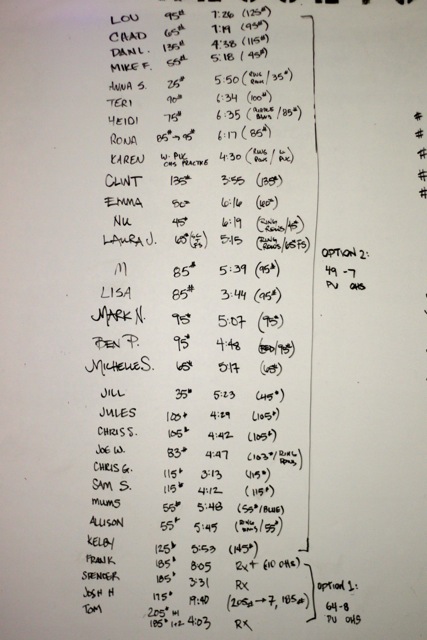 LOU 95# 7:26 (125#)
CHAD 65# 7:19 (95#)
DAN L. 135# 4:38 (115#)
MIKE F. 55# 5:18 (45#)
ANNA S. 25# 5:50 (RING ROWS/35#)
TERI 90# 6:34 (100#)
HEIDI 75# 6:35 (BANDS/85#)
RONA 85# → 95# 6:17 (85#)
KAREN W. PVC OHS PRACTICE 4:30 (RING ROWS/W. PVC)
CLINT 135# 3:55 (135#)
EMMA 50# 6:16 (60#)
NU 45# 6:19 (RING ROWS/45#)
LAURA J. 65# 5:15 (RING ROWS/65 FS)
M 85# 5:39 (95#)
LISA 85# 3:44 (95#)
MARK N. 95# 5:07 (95#)
BEN P. 95# 4:48 (95#)
MICHELLE S. 65# 5:17 (65#)
JILL 35# 5:23 (45#)
JULES 105# 4:29 (105#)
CHRIS S. 105# 4:42 (105#)
JOE W. 83# 4:47 (103#/RING ROWS)
CHRIS G. 115# 3:13 (115#)
SAM S. 115# 4:12 (115#)
MUMS 55# 5:48 (55#/BLUE)
ALLISON 55# 5:45 (RING ROWS/55#)
KELBY 125# 3:53 (145#)
OPTION 2:
49 - 7
PU OHS
FRANK 185# 8:05 RX+ (10 OHS)
SPENCER 185# 3:31 RX
JOSH H 175# 19:40 (205# → 7, 185#)
TOM 205# 185# 4:03 RX
OPTION 1:
64-8
PU OHS
#
#
#
#
#